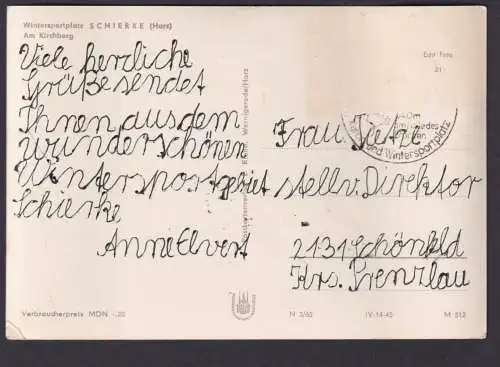 Wintersportplatz SCHIERKE (Harz)
Am Kirchberg
Viele herzliche
Grüße sendet
Ihnen aus dem
wunderschönen
Wintersportgebiet
Schierke
Anni Elvert
Echt Foto
21
und Wintersportplatz
Frau Tietze
stellv. Direktor
2131 Schönfeld
Krs. Prenzlau
Wernigerode/Harz
Verbraucherpreis MDN -.20
N 3/65
IV-14-45
M 512